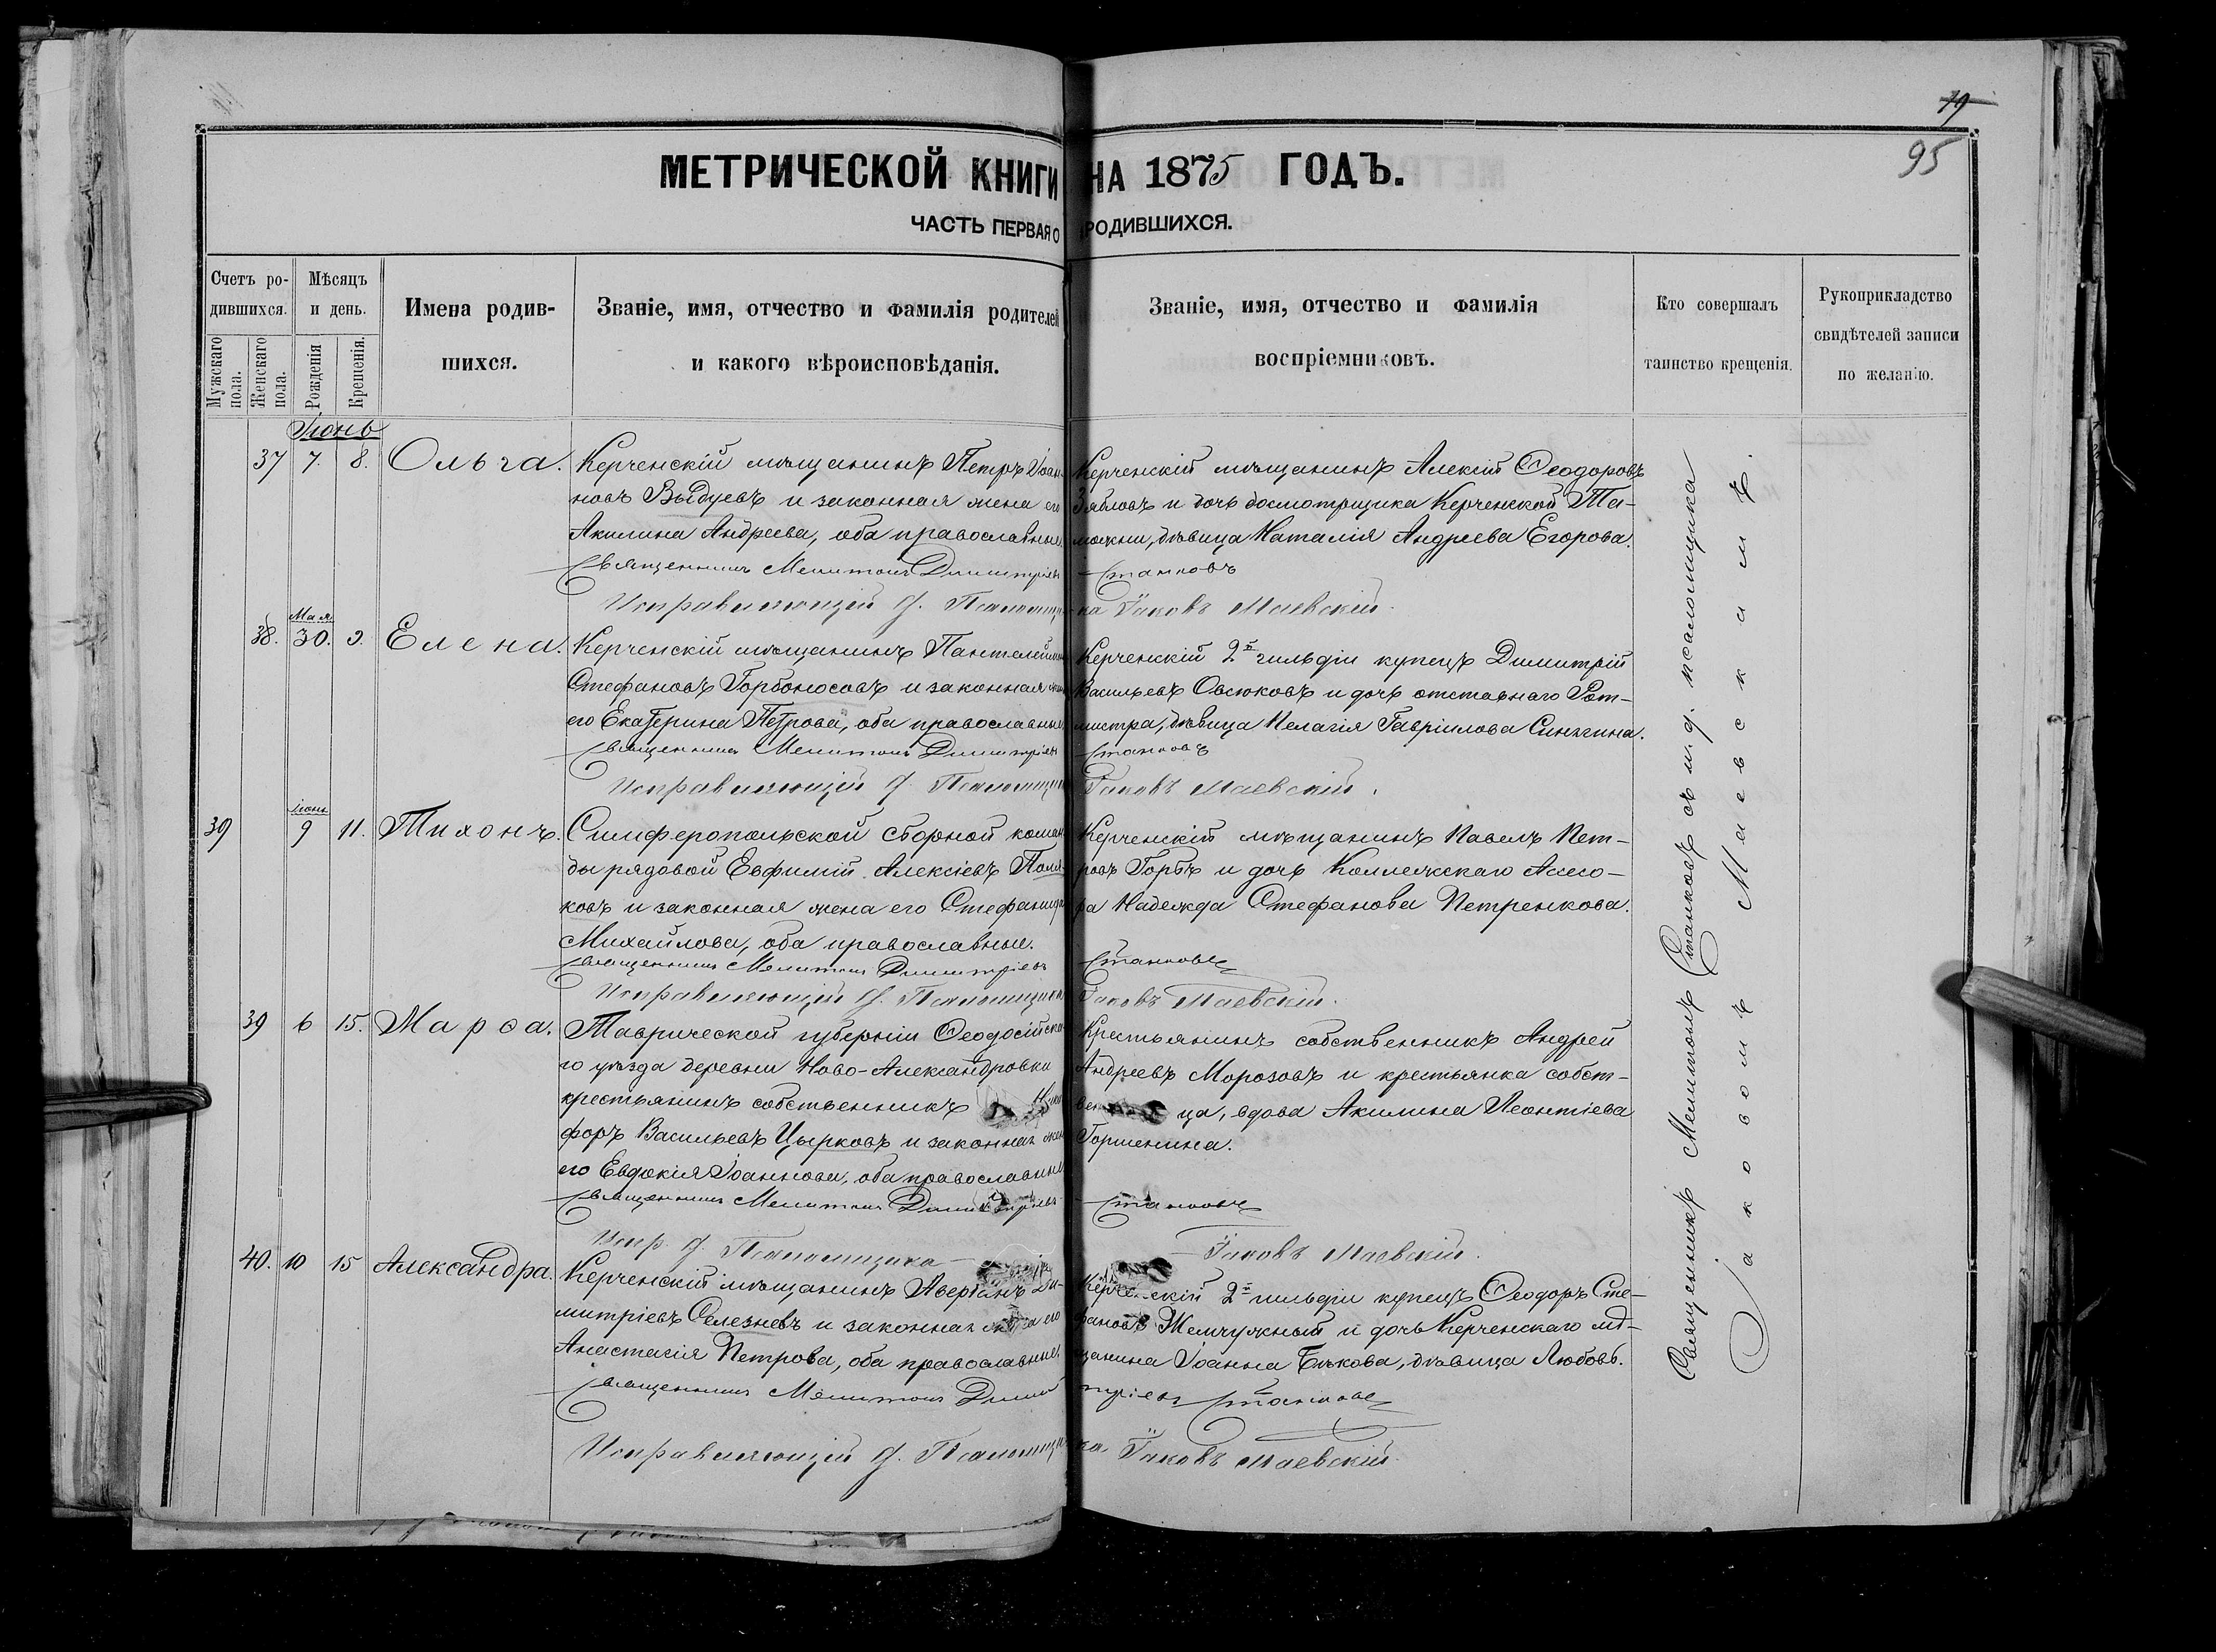 79
95
МЕТРИЧЕСКОЙ КНИГИ НА 1875 ГОДЪ.
ЧАСТЬ ПЕРВАЯ О РОДИВШИХСЯ.
Счетъ родившихся.
Мужскаго пола.
Женскаго пола.
Мѣсяцъ и день.
Рожденія
Крещенія.
Имена родив-
шихся.
Званіе, имя, отчество и фамилія родителей
и какого вѣроисповѣданія.
Званіе, имя, отчество и фамилія
воспріемниковъ.
Кто совершалъ
таинство крещенія.
Рукоприкладство
свидѣтелей записи
по желанію.
Іюнь
37 7. 8. Ольга.
Керченскій мѣщанинъ Петръ Іоан-
новъ Выдуевъ и законная жена его
Акилина Андреева, оба православные.
Керченскій мѣщанинъ Алексій Ѳеодоровъ
Зябловъ и дочь досмотрщика Керченской Та-
можни, дѣвица Наталія Андреева Егорова.
Священникъ Мелитонъ Димитріевъ Станковъ
Исправляющій д. Псаломщика Іаковъ Маевскій.
Мая
38. 30. 9. Елена.
Керченскій мѣщанинъ Пантелеймонъ
Стефановъ Горбоносовъ и законная жена
его Екатерина Петрова, оба православные
Керченскій 2й гильдіи купецъ Димитрій
Васильевъ Овсюковъ и дочь отставнаго Рот-
мистра, дѣвица Пелагія Гавріилова Синягина.
Священникъ Мелитонъ Димитріевъ Станковъ
Исправляющій д. Псаломщика Іаковъ Маевскій.
Іюнь
39 9 11. Тихонъ.
Симферопольской сборной коман-
ды рядовой Евфимій Алексіевъ Поля-
ковъ и законная жена его Стефанида
Михайлова, оба православные.
Керченскій мѣщанинъ Павелъ Пет-
ровъ Горбъ и дочь Коллежскаго Ассесо-
ра Надежда Стефанова Петренкова.
Священникъ Мелитонъ Димитріевъ Станковъ
Исправляющій д. Псаломщика Іаковъ Маевскій.
39 6 15. Марѳа.
Таврической губерніи Ѳеодосійска-
го уѣзда деревни Ново-Александровки
крестьянинъ собственникъ Ники-
форъ Васильевъ Цырковъ и законная жена
его Евдокія Іоаннова, оба православные
Крестьянинъ собственникъ Андрей
Андреевъ Морозовъ и крестьянка собст-
вен ца, вдова Акилина Леонтіева
Горшенина.
Священникъ Мелитонъ Димитріевъ Станковъ
Испр. д. Псаломщика Іаковъ Маевскій.
40. 10 15 Александра.
Керченскій мѣщанинъ Аверіанъ Ди-
митріевъ Селезневъ и законная жена его
Анастасія Петрова, оба православные.
Керченскій 2й гильдіи купецъ Ѳеодоръ Сте-
фановъ Жемчужный и дочь Керченскаго мѣ-
щанина Іоанна Быкова, дѣвица Любовь.
Священникъ Мелитонъ Димитріевъ Станковъ
Исправляющій д. Псаломщика Іаковъ Маевскій.
Священникъ Мелитонъ Станковъ съ и. д. псаломщика
Іаковомъ Маевскимъ.